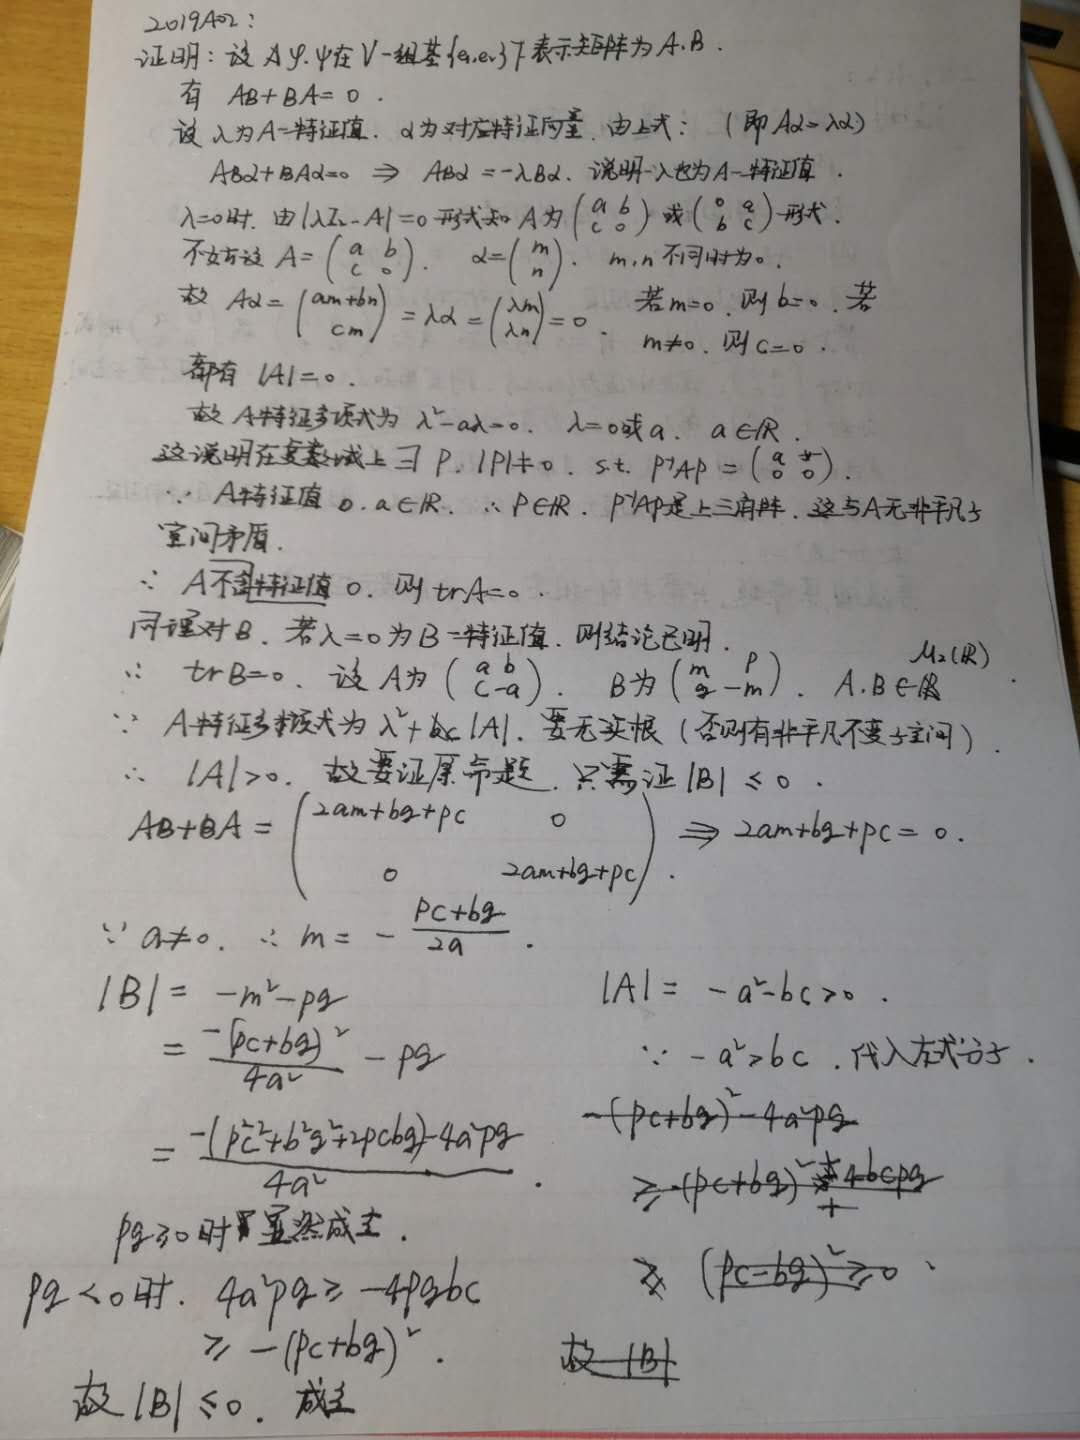 2019A02:
证明: 设 A φ.ψ在 V 一组基{e₁,e₂}下表示矩阵为 A.B.
有 AB+BA=0.
设 λ为A一特征值. α为对应特征向量. 由上式: (即 Aα=λα)
ABα+BAα=0 ⇒ ABα=-λBα. 说明-λ也为A一特征值.
λ=0时. 由|λI₂-A|=0 形式知 A为 (a b; c 0) 或 (0 a; b c) 形式.
不妨设 A=(a b; c 0). α=(m; n). m,n 不同时为0.
故 Aα=(am+bn; cm)=λα=(λm; λn)=0. 若m=0. 则b=0. 若
m≠0. 则 c=0.
都有 |A|=0.
故 A特征多项式为 λ²-aλ=0. λ=0或a. a∈R.
这说明在复数域上∃ P. |P|≠0. s.t. P⁻¹AP=(a *; 0 0).
∵ A特征值 0.a∈R. ∴ P∈R. P⁻¹AP是上三角阵. 这与A无非平凡子
空间矛盾.
∴ A不含特征值 0. 则 trA=0.
同理对B. 若λ=0为B一特征值. 则结论已明.
∴ trB=0. 设 A为 (a b; c -a). B为 (m p; q -m). A.B∈ M₂(R)
∵ A特征多项式为 λ²+|A|. 要无实根 (否则有非平凡不变子空间).
∴ |A|>0. 故要证原命题. 只需证 |B|≤0.
AB+BA=(2am+bq+pc 0; 0 2am+bq+pc) ⇒ 2am+bq+pc=0.
∵ a≠0. ∴ m=-(pc+bq)/2a.
|B|= -m²-pq |A|= -a²-bc>0.
= -(pc+bq)²/4a² - pq ∵ -a²>bc. 代入左式分子.
-(pc+bq)²-4a²pq
= -(p²c²+b²q²+2pcbq)-4a²pq/4a². ≥ -(pc+bq)²+4bcpq
pq≥0时显然成立.
≥ (pc-bq)²≥0
pq<0时. 4a²pq≥-4pqbc
≥ -(pc+bq)². 故 |B|
故 |B|≤0. 成立